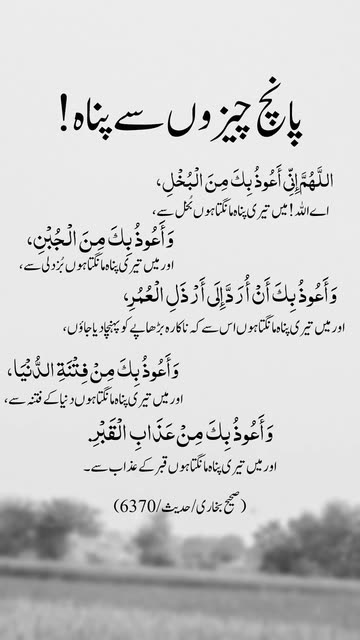 پانچ چیزوں سے پناہ!
اللَّهُمَّ إِنِّي أَعُوذُ بِكَ مِنَ الْبُخْلِ،
اے اللہ! میں تیری پناہ مانگتا ہوں بُخل سے،
وَأَعُوذُ بِكَ مِنَ الْجُبْنِ،
اور میں تیری پناہ مانگتا ہوں بُزدلی سے،
وَأَعُوذُ بِكَ أَنْ أُرَدَّ إِلَى أَرْذَلِ الْعُمُرِ،
اور میں تیری پناہ مانگتا ہوں اس سے کہ ناکارہ بڑھاپے کو پہنچا دیا جاؤں،
وَأَعُوذُ بِكَ مِنْ فِتْنَةِ الدُّنْيَا،
اور میں تیری پناہ مانگتا ہوں دنیا کے فتنہ سے،
وَأَعُوذُ بِكَ مِنْ عَذَابِ الْقَبْرِ.
اور میں تیری پناہ مانگتا ہوں قبر کے عذاب سے۔
(صحیح بخاری/حدیث/6370)